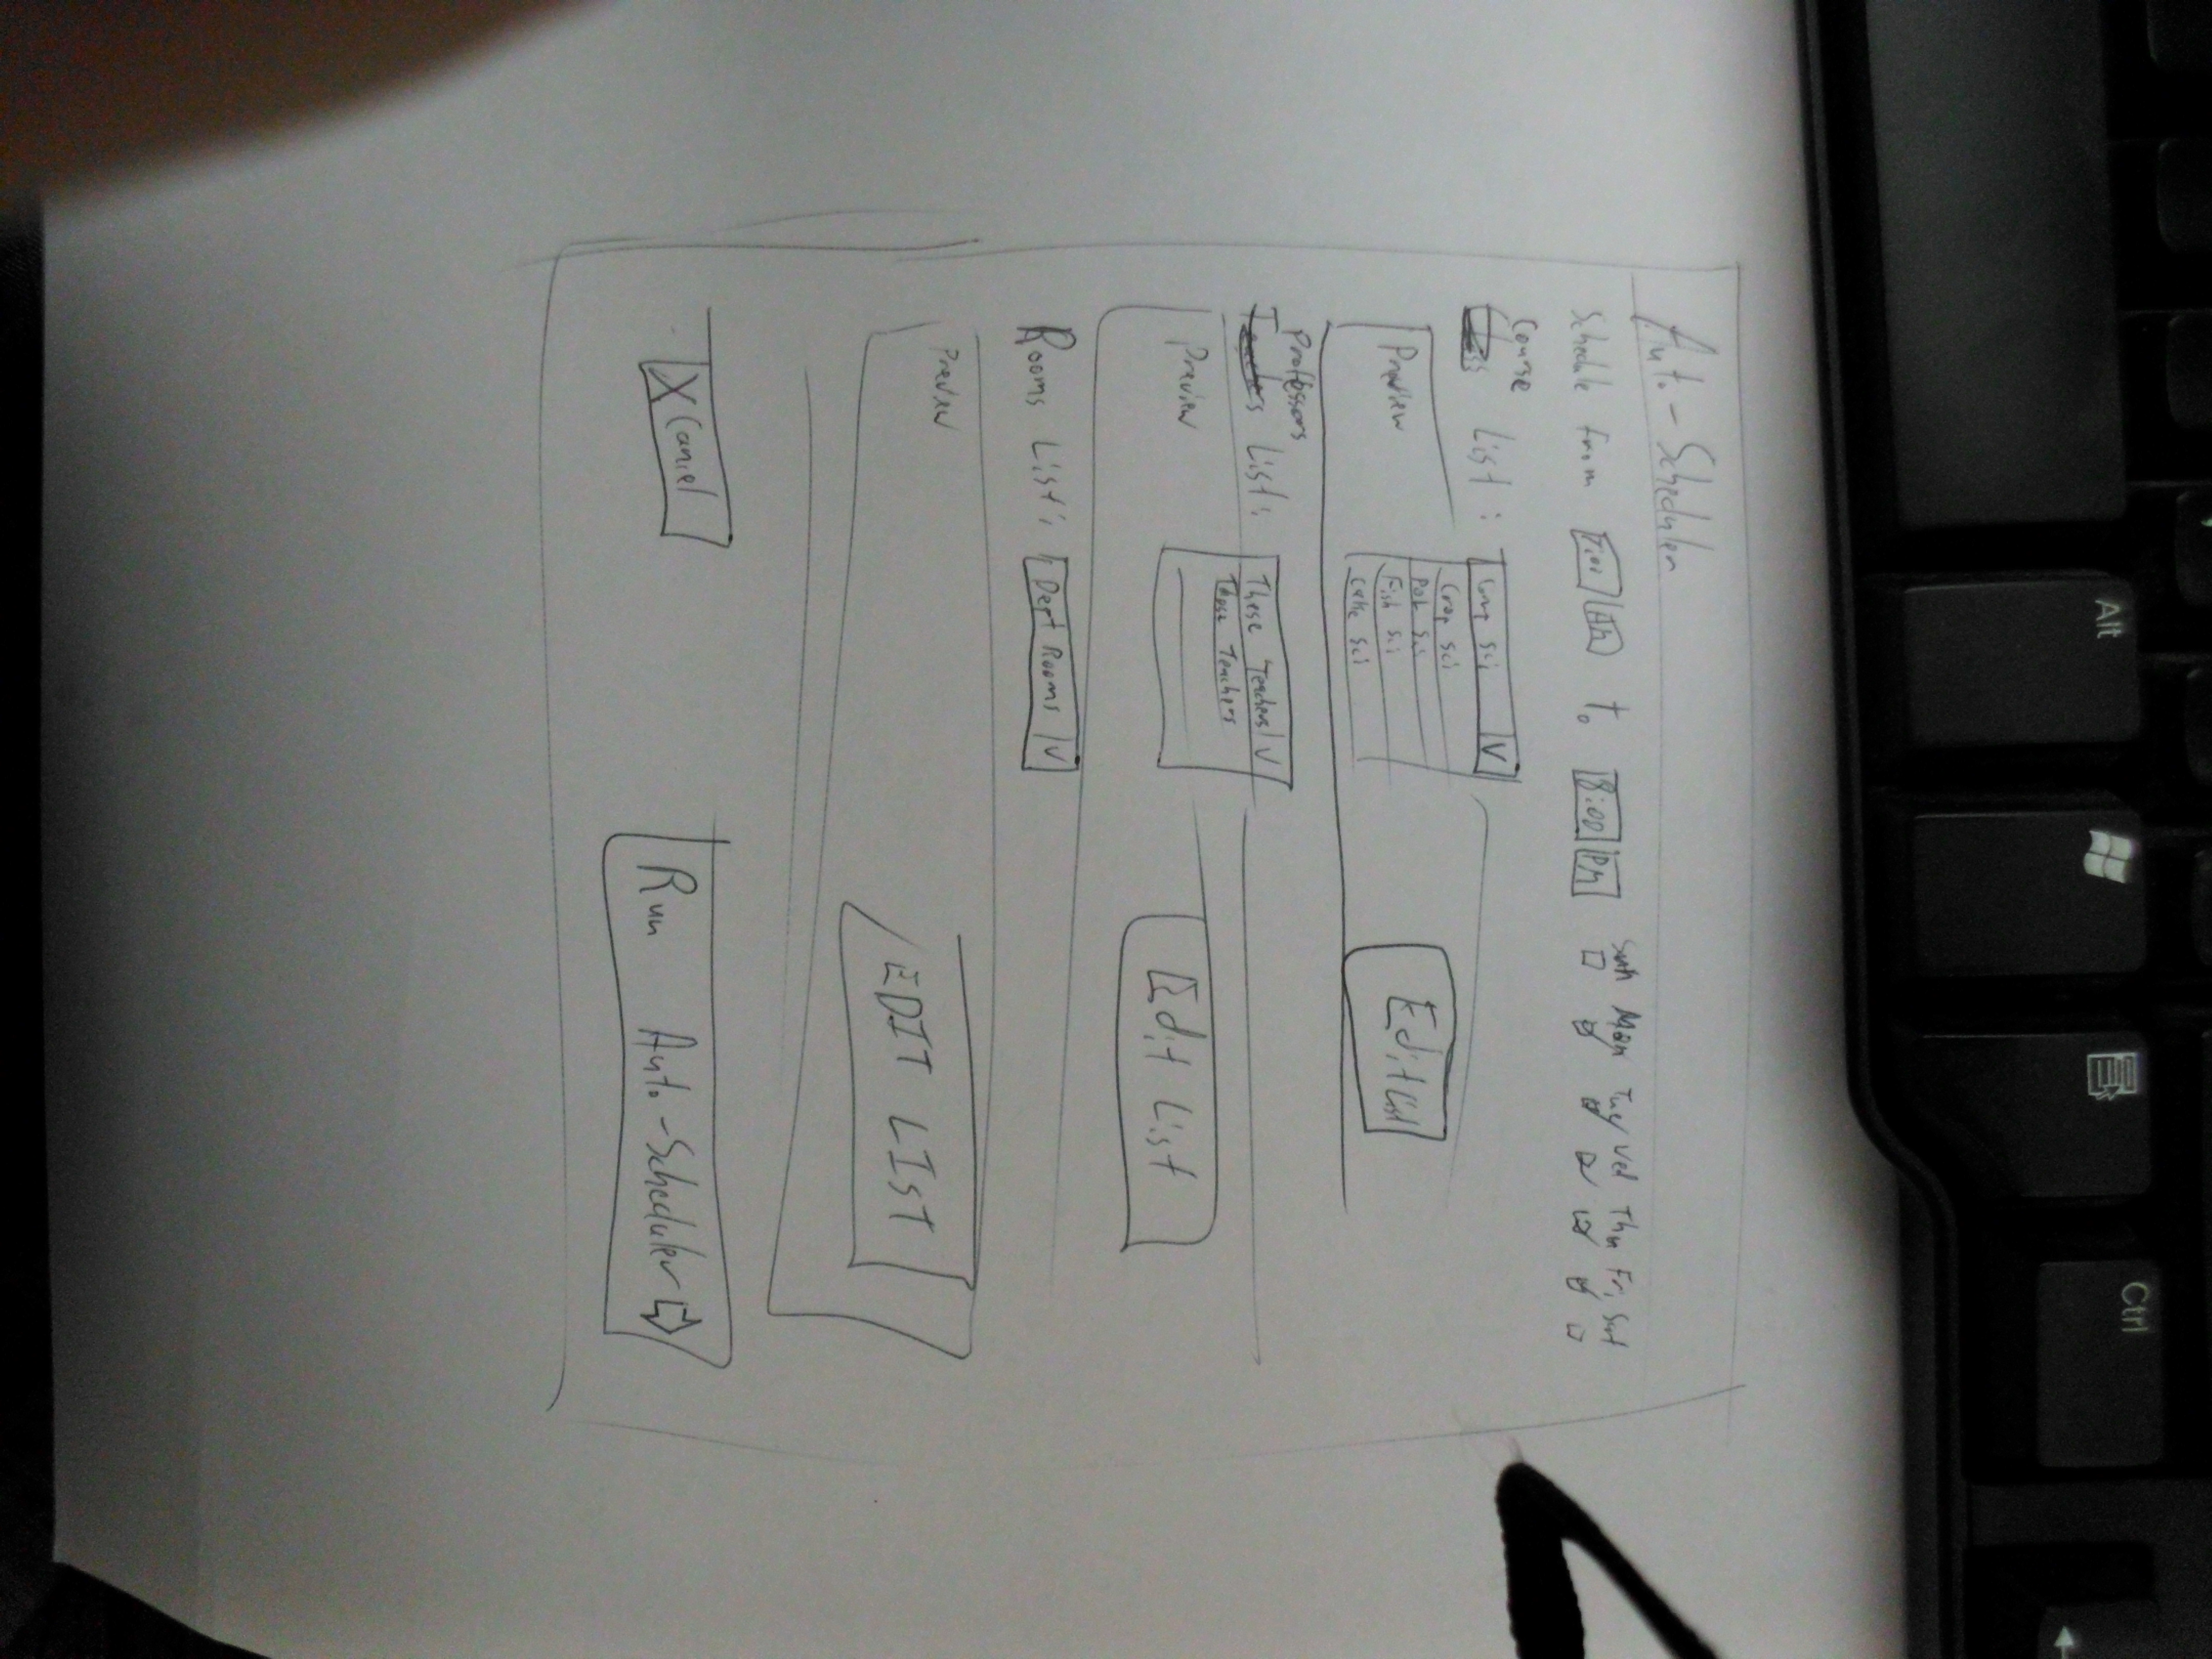 Auto-Scheduler
Schedule from 7:00 AM to 8:00 PM
Sun Mon Tue Wed Thu Fri Sat
Course
List :
Comp Sci V
Crop Sci
Fish Sci
Cake Sci
Preview
Edit List
Professors
Teachers List:
These Teachers V
Those Teachers
Preview
Edit List
Rooms List: Dept Rooms V
Preview
EDIT LIST
X Cancel
Run Auto-Scheduler
Alt
Ctrl